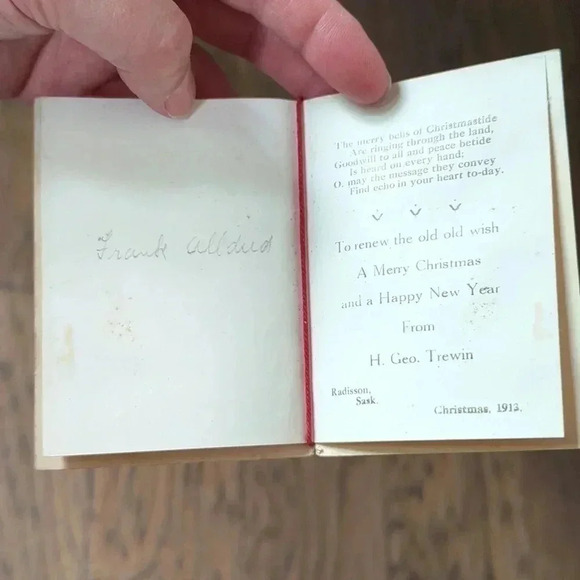 Frank Alldred
The merry bells of Christmastide
Are ringing through the land,
Goodwill to all and peace betide
Is heard on every hand;
O. may the message they convey
Find echo in your heart to-day.
To renew the old old wish
A Merry Christmas
and a Happy New Year
From
H. Geo. Trewin
Radisson,
Sask.
Christmas, 1913.